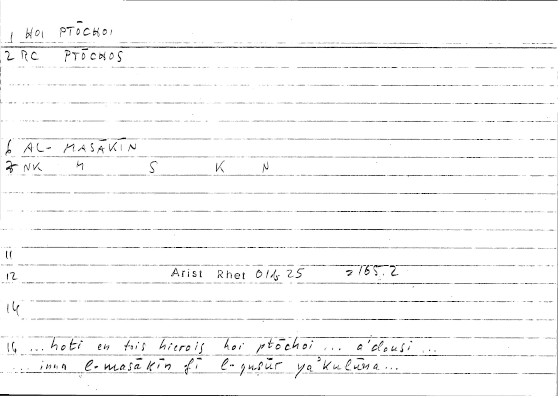 1 HOI PTŌCHOI
2 RC PTŌCHOS
6 AL-MASĀKĪN
7 NK M S K N
11
12 Arist Rhet 01b 25 =165.2
14
16 ...hoti en tois hierois hoi ptōchoi ... a'dousi ...
... inna l-masākīn fī l-quṣūr ya'kulūna...